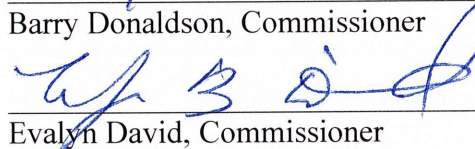 Barry Donaldson, Commissioner
Evalyn David, Commissioner